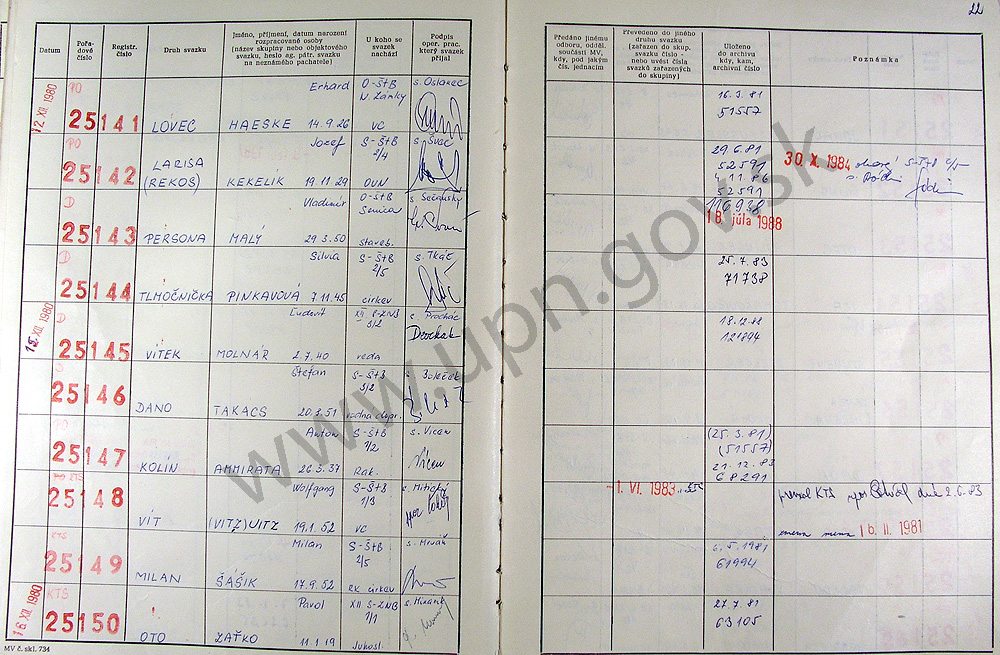 22
Datum
Pořadové číslo
Registr. číslo
Druh svazku
Jméno, příjmení, datum narození rozpracované osoby
(název skupiny nebo objektového svazku, heslo ag. pátr. svazku na neznámého pachatele)
U koho se svazek nachází
Podpis oper. prac. který svazek přijal
Předáno jinému odboru, odděl. součásti MV, kdy, pod jakým čís. jednacím
Převedeno do jiného druhu svazku (zařazen do skup. svazku číslo - nebo uvést čísla svazků zařazených do skupiny)
Uloženo do archivu kdy, kam, archivní číslo
Poznámka
12. XII. 1980
PO
25141
LOVEC
Erhard
HAESKE 14.9.26
O-ŠtB
N. Zámky
VC
s. Oslanec
16.3.81
51557
PO
25142
LARISA
(REKOS)
Jozef
KEKELÍK 19.11.29
S-ŠtB
2/4
s. Švec
29.6.81
52591
4.11.86
52591
30 X. 1984
D
25143
PERSONA
Vladimír
MALÝ 29.3.50
O-ŠtB
Senica
staveb.
116938
18. júla 1988
D
25144
TLMOČNIČKA
Silvia
PINKAVOVÁ 7.11.45
S-ŠtB
2/5
cirkev
s. Tkáč
25.7.83
71738
15. XII. 1980
D
25145
VÍTEK
Ľudovít
MOLNÁR 2.7.40
XII S-ZNB
3/2
veda
18.12.88
121894
25146
DANO
Štefan
TAKACS 20.3.51
S-ŠtB
3/2
vodna dopr.
s. Boleček
PO
25147
KOLÍN
Anton
AMMIRATA 26.3.37
S-ŠtB
1/2
Rak.
s. Vican
(25.3.81)
(51557)
21.12.83
68291
25148
VÍT
Wolfgang
(VITZ) UITZ 19.1.52
S-ŠtB
1/3
VC
-1. VI. 1983
prevzal KTS
dne 2.6.83
16 II. 1981
KTS
25149
MILAN
Milan
ŠÁŠIK 17.9.52
S-ŠtB
2/5
RK cirkev
s. Mrvák
6.5.1981
61994
16. XII. 1980
KTS
25150
OTO
Pavol
ZAŤKO 11.1.19
XII S-ZNB
1/1
Juhosl.
27.7.81
63105
MV č. skl. 734
www.upn.gov.sk